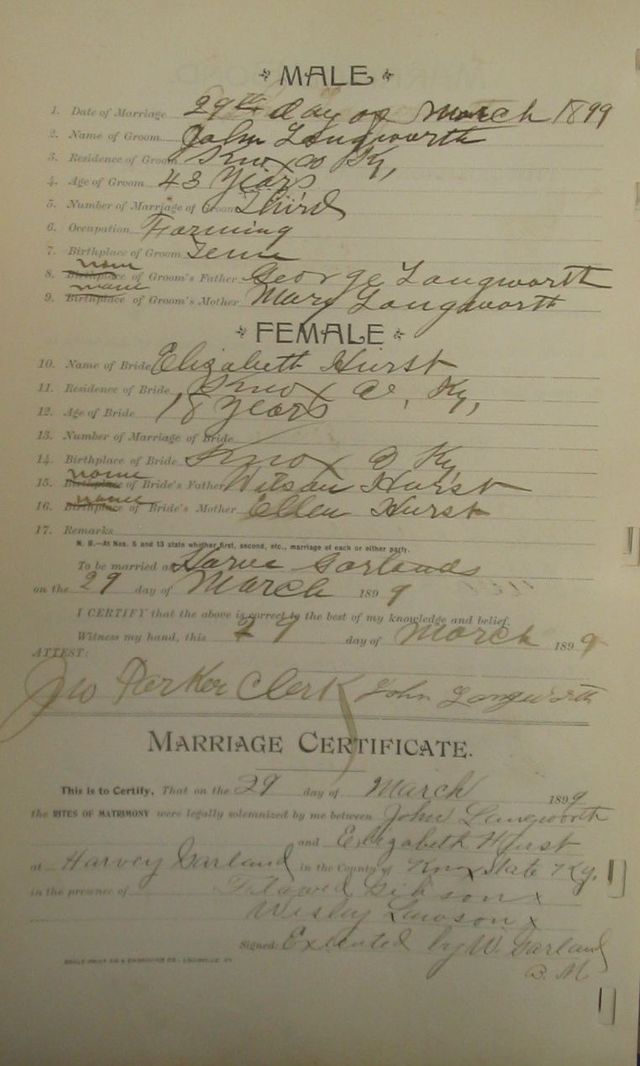 MALE
1. Date of Marriage 29th day of March 1899
2. Name of Groom John Longworth
3. Residence of Groom Knox Co Ky,
4. Age of Groom 43 Years
5. Number of Marriage of Groom Third
6. Occupation Farming
7. Birthplace of Groom Tenn
name
8. Birthplace of Groom's Father George Longworth
name
9. Birthplace of Groom's Mother Mary Longworth
FEMALE
10. Name of Bride Elizabeth Hurst
11. Residence of Bride Knox Co, Ky,
12. Age of Bride 18 Years
13. Number of Marriage of Bride
14. Birthplace of Bride Knox Co Ky
name
15. Birthplace of Bride's Father Wilson Hurst
name
16. Birthplace of Bride's Mother Ellen Hurst
17. Remarks
N. B.—At Nos. 5 and 13 state whether first, second, etc., marriage of each or either party.
To be married at Harve Garlands
on the 29 day of March 1899
I CERTIFY that the above is correct to the best of my knowledge and belief.
Witness my hand, this 29 day of March 1899
ATTEST:
Jno Parker Clerk John Longworth
MARRIAGE CERTIFICATE.
This is to Certify, That on the 29 day of March 1899
the RITES OF MATRIMONY were legally solemnized by me between John Longworth
and Elizabeth Hurst
at Harvey Garland in the County of Knox State Ky.
in the presence of
Wisley Lawson x
Signed: Executed by W. Garland